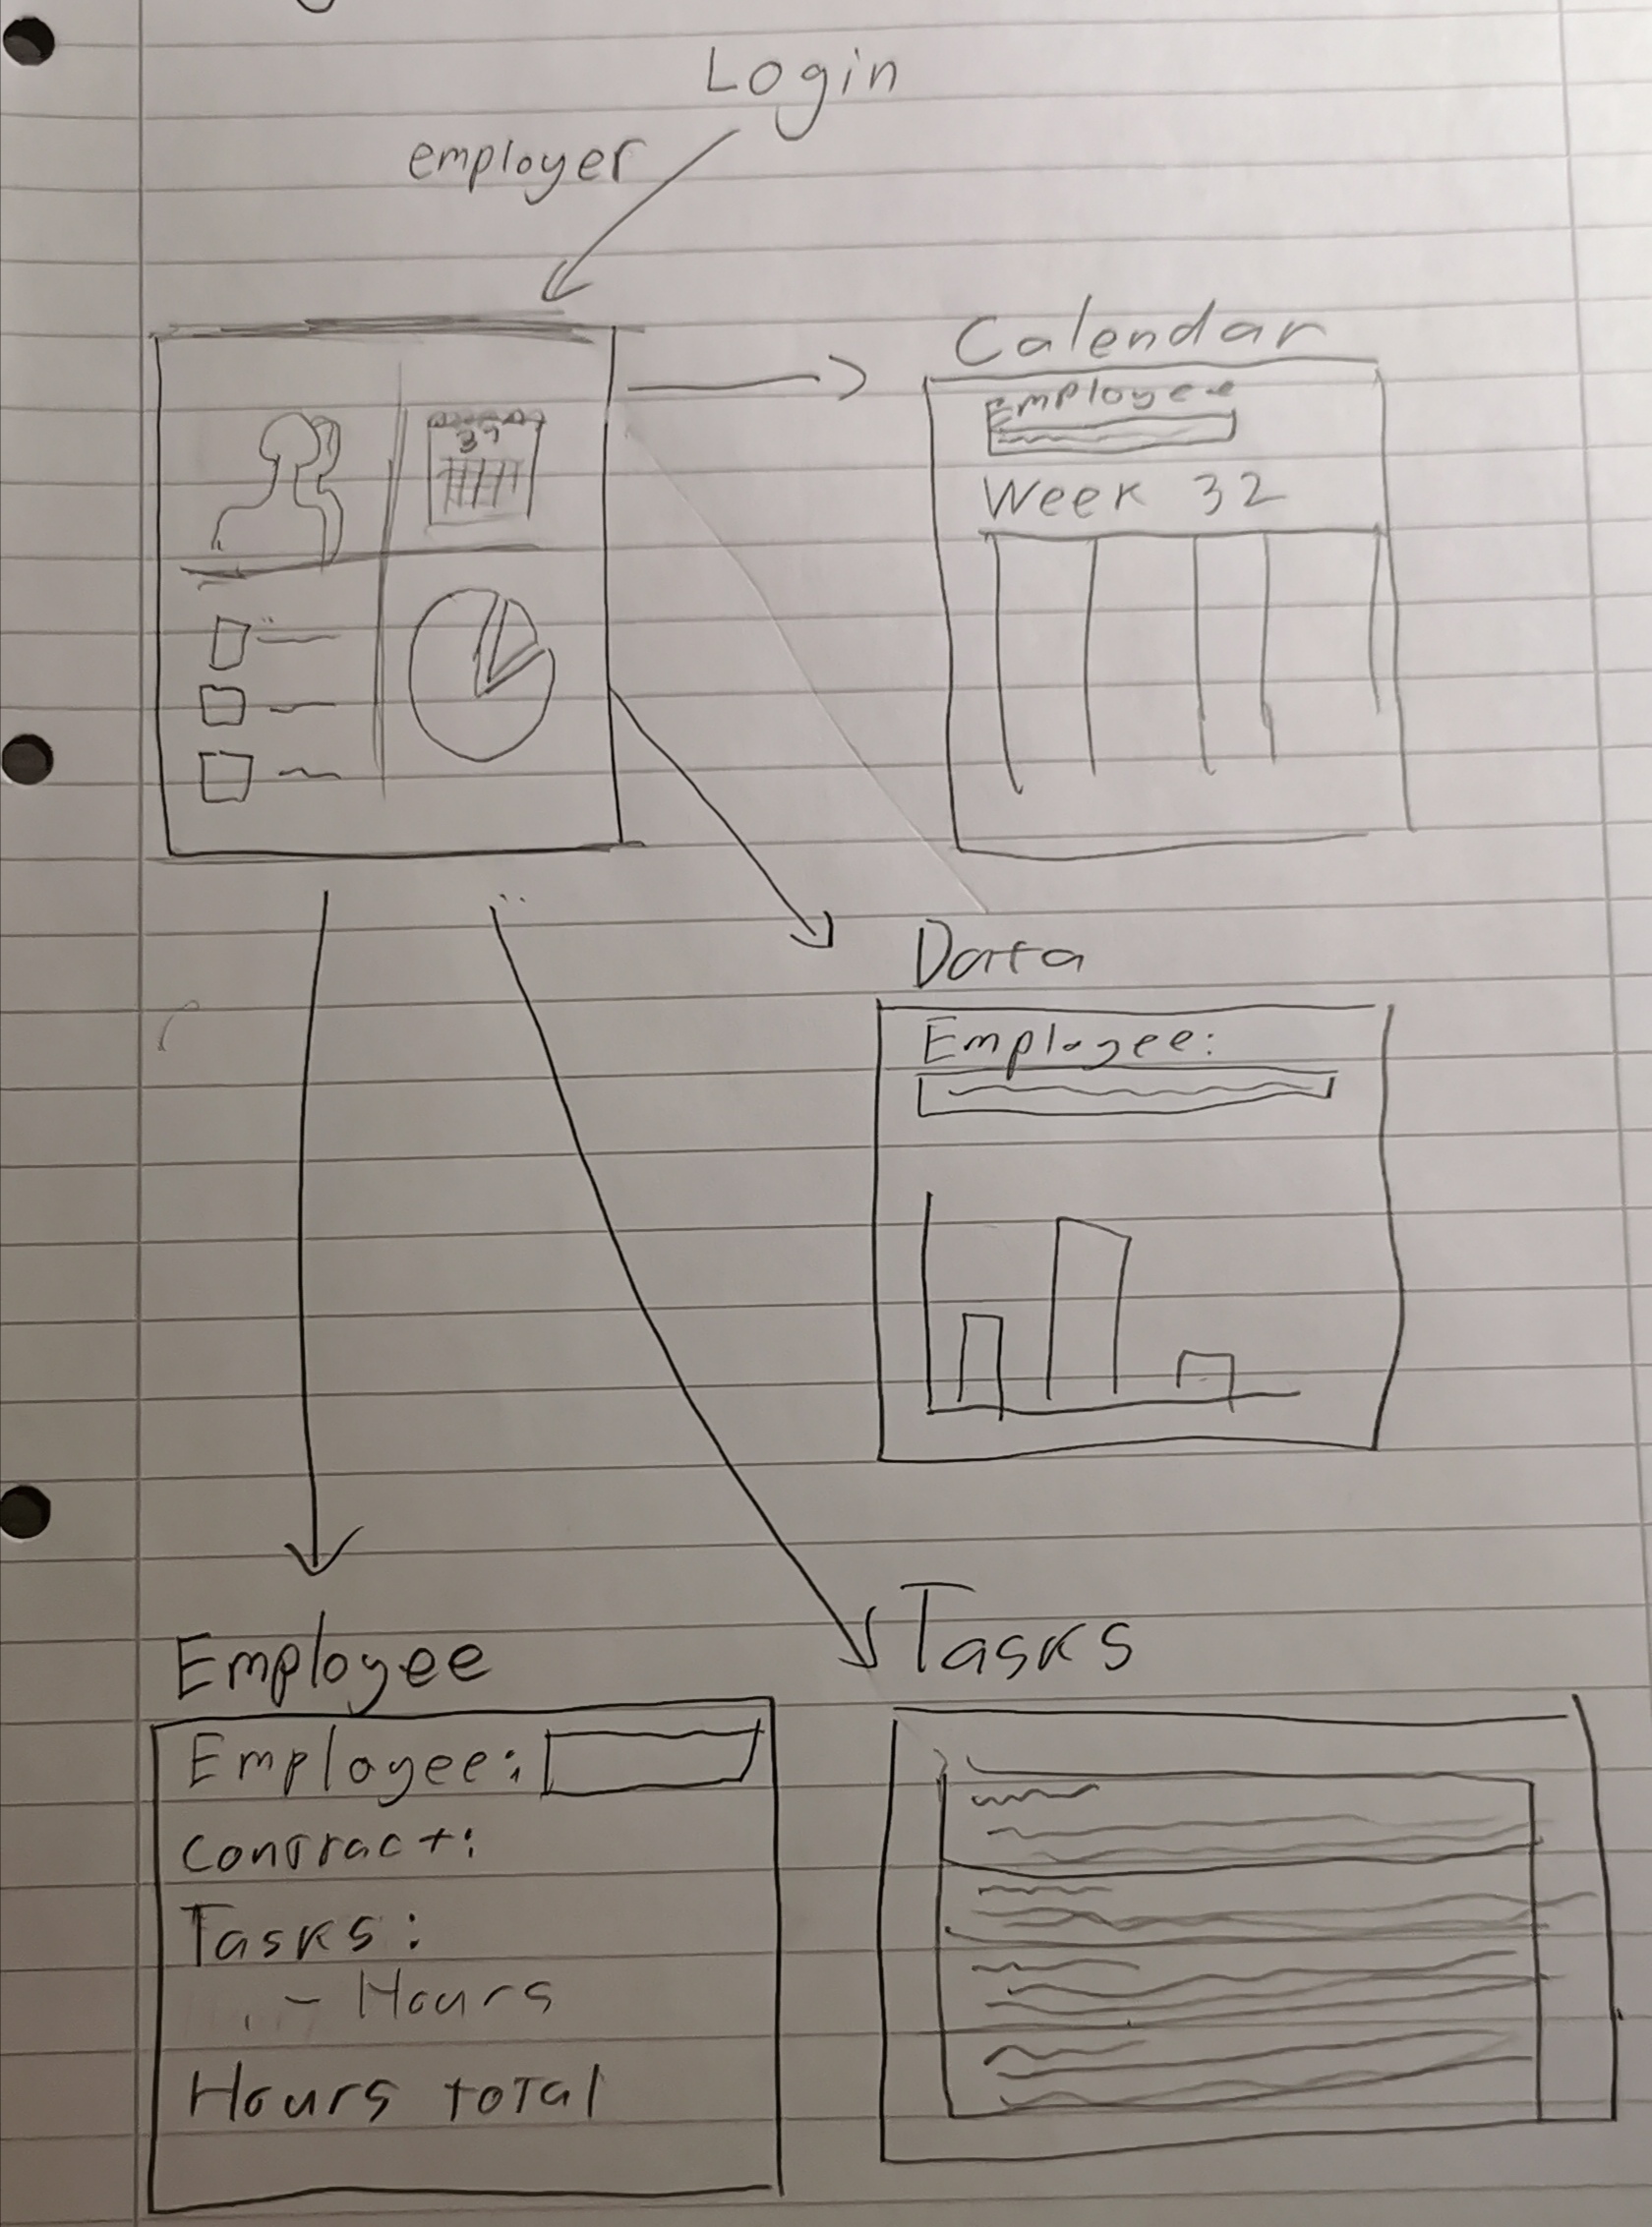 Login
employer
Calendar
Employee
Week 32
Data
Employee:
Employee
Employee:
Contract:
Tasks:
- Hours
Hours total
Tasks